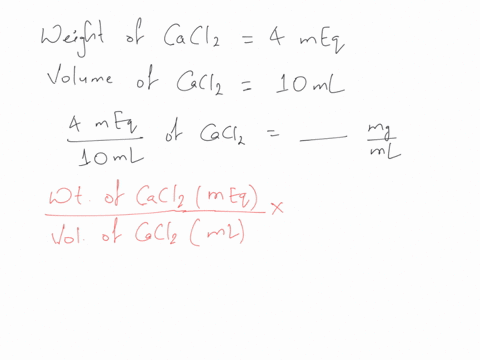 Weight of CaCl2 = 4 mEq
Volume of CaCl2 = 10 mL
4 mEq / 10 mL of CaCl2 = ___ mg / mL
Wt. of CaCl2 (mEq) / Vol. of CaCl2 (mL) ×